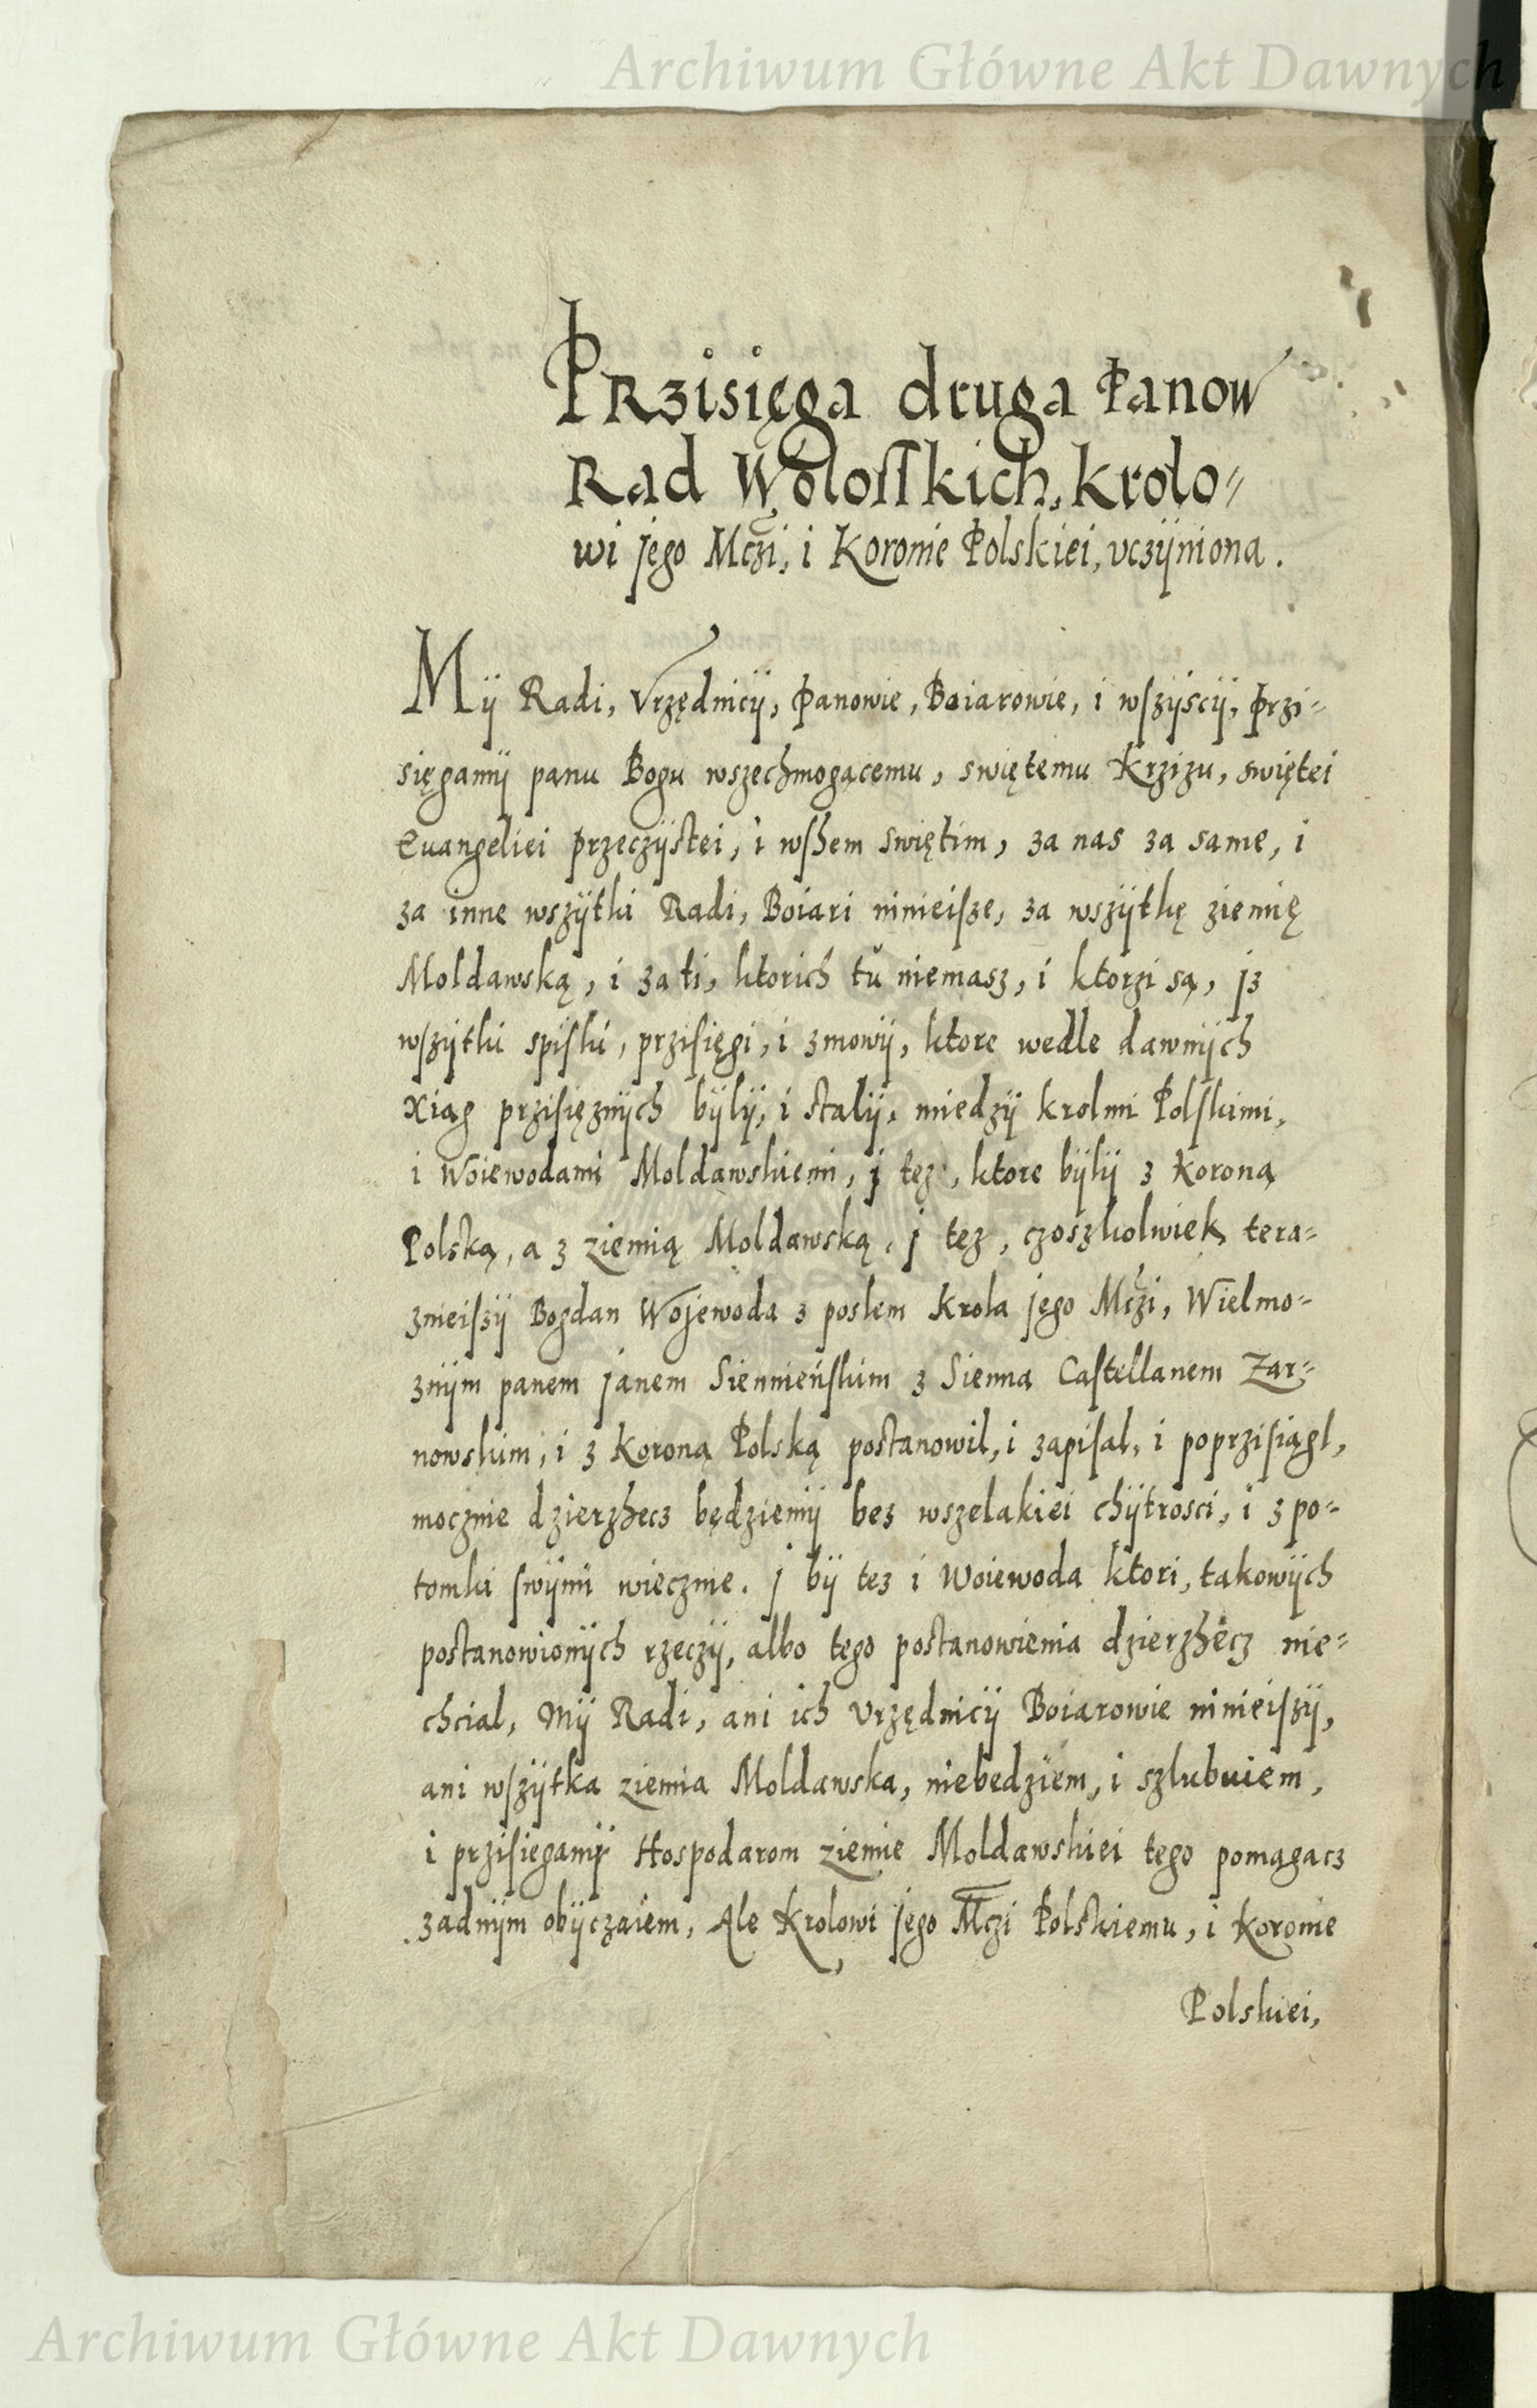 Archiwum Główne Akt Dawnych
Przisięga druga Panow
Rad Wołoskich, krolo=
wi jego Mczi, i Koronie Polskiei, vczÿniona.
Mÿ Radi, Vrzędnicÿ, Panowie, Boiarowie, i wszÿscÿ, Przi=
sięgamÿ panu Bogu wszechmogącemu, swiętemu Krzizu, swiętei
Euangeliei przeczÿstei, i wshem swiętim, za nas za same, i
za inne wszÿtki Radi, Boiari ninieisze, za wszÿtkę ziemię
Moldawską, i za ti, ktorich tŭ niemasz, i ktorzi są, jz
wszÿtki spiski, przisięgi, i zmowÿ, ktore wedle dawnÿch
Xiąg przisięznÿch bÿlÿ, i stalÿ, miedzÿ krolmi Polskimi,
i Woiewodami Moldawskiemi, j tez, ktore bÿlÿ z Koroną
Polską, a z ziemią Moldawską, j tez, czoszkolwiek tera=
znieiszÿ Bogdan Wojewoda z poslem Krola jego Mczi, Wielmo=
znÿm panem janem Sienieńskim z Sienna Castellanem Zar=
nowskim, i z Koroną Polską postanowil, i zapisal, i poprzisiągl,
mocznie dzierzhecz będziemÿ bez wszelakiei chÿtrosci, i z po=
tomki swÿmi wiecznie. j bÿ tez i Woiewoda ktori, takowÿch
postanowionÿch rzeczÿ, albo tego postanowienia dzierzhecz nie=
chcial, Mÿ Radi, ani ich Vrzędnicÿ Boiarowie ninieiszÿ,
ani wszÿtka ziemia Moldawska, niebedziem, i szlubuiem,
i przisiegamÿ Hospodarom ziemie Moldawskiei tego pomagacz
zadnÿm obÿczaiem, Ale Krolowi jego Mczi Polskiemu, i Koronie
Polskiei,
Archiwum Główne Akt Dawnych